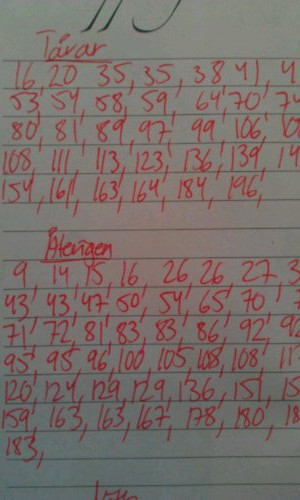 Tårar
16, 20 35, 35, 38 41, 4
53, 54, 58, 59, 64, 70, 74
80, 81, 89, 97, 99, 106, 10
108, 111, 113, 123, 136, 139, 14
154, 161, 163, 164, 184, 196,
Återigen
9, 14, 15, 16, 26, 26, 27, 3
43, 43, 47, 50, 54, 65, 70,
71, 72, 81, 83, 83, 86, 92, 92
95, 95, 96, 100, 105, 108, 108, 11
120, 124, 129, 129, 136, 151, 15
159, 163, 163, 167, 178, 180, 18
183,